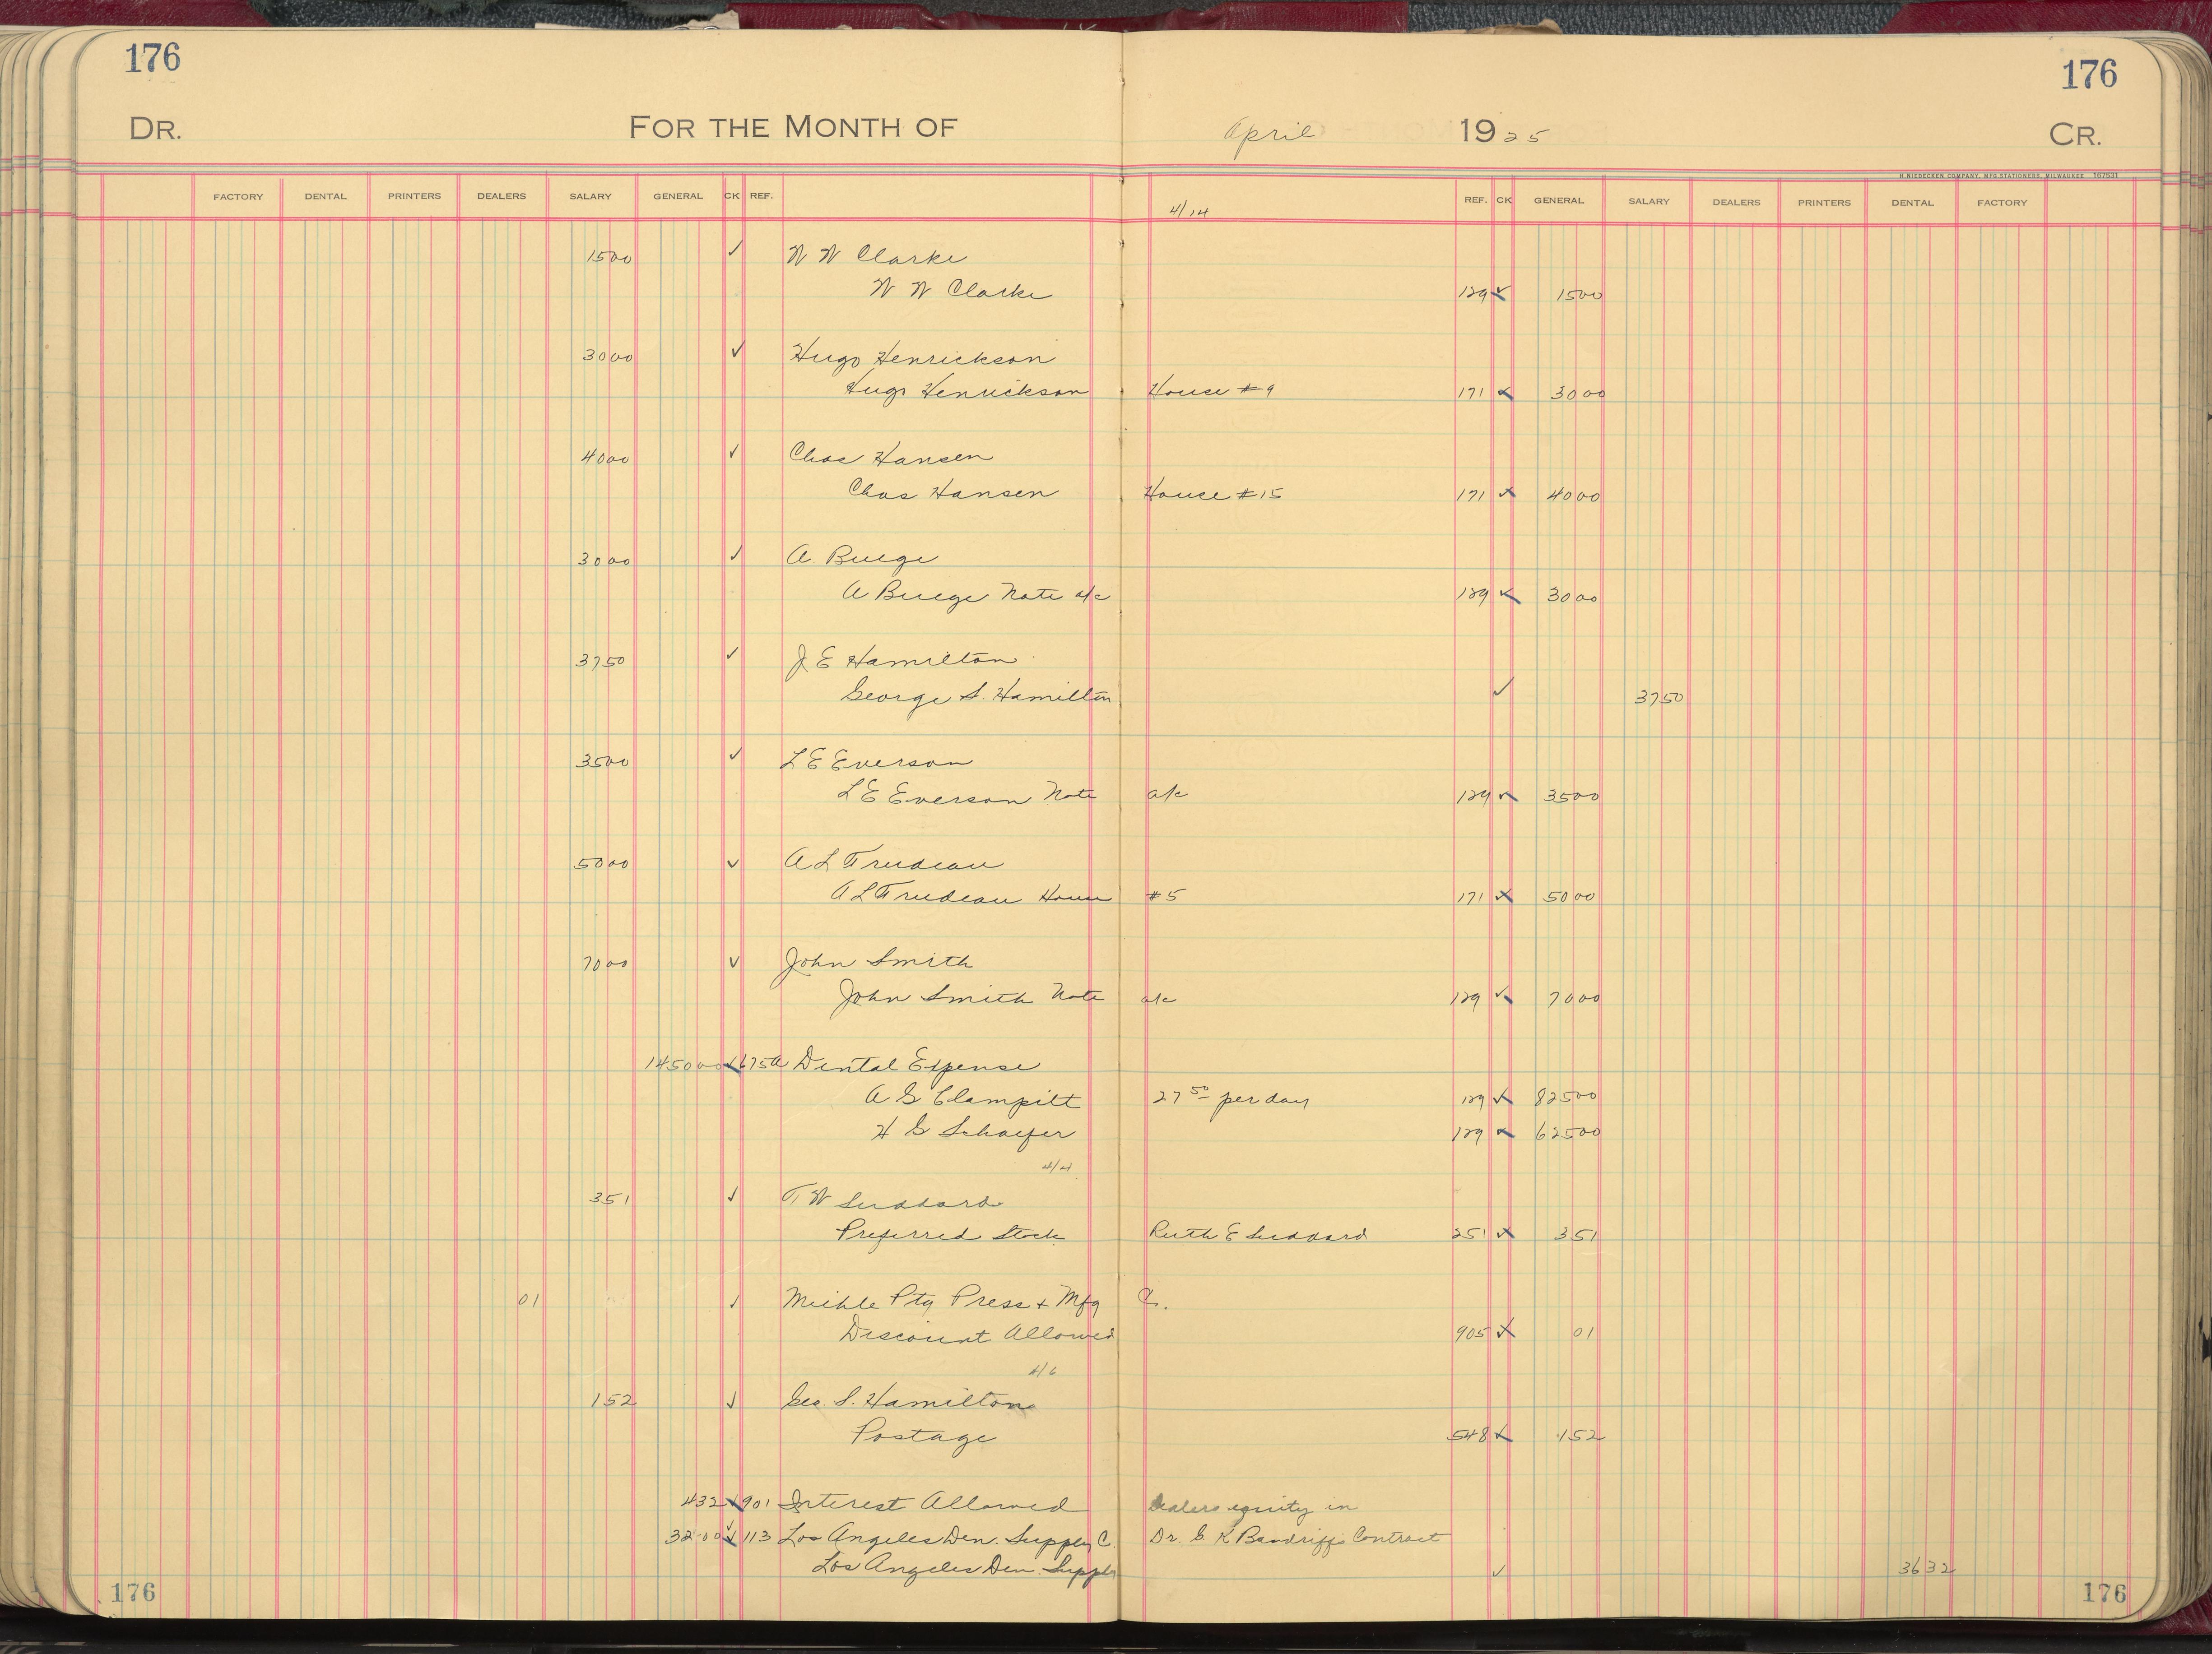 176 176
DR. FOR THE MONTH OF April 1925 CR.
H. NIEDECKEN COMPANY, MFG. STATIONERS, MILWAUKEE 167631
FACTORY DENTAL PRINTERS DEALERS SALARY GENERAL CK REF. 4/14 REF. CK GENERAL SALARY DEALERS PRINTERS DENTAL FACTORY
1500 ✓ W W Clarke
W W Clarke 129 ✓ 1500
3000 ✓ Hugo Henrickson
Hugo Henrickson House #9 171 ✓ 3000
4000 ✓ Chas Hansen
Chas Hansen House #15 171 ✓ 4000
3000 ✓ A. Buege
A Buege Note a/c 129 ✓ 3000
3750 ✓ J E Hamilton
George S. Hamilton ✓ 3750
3500 ✓ L E Everson
L E Everson Note a/c 129 ✓ 3500
5000 ✓ A L Trudeau
A L Trudeau House #5 171 ✓ 5000
7000 ✓ John Smith
John Smith Note a/c 129 ✓ 7000
145000 ✓ 675A Dental Expense
A G Clampitt 27 50 per day 129 ✓ 82500
H G Schaefer 129 ✓ 62500
4/4
351 ✓ T W Suddard
Preferred Stock Ruth E Suddard 251 ✓ 351
01 ✓ Miehle Ptg Press + Mfg Co.
Discount Allowed 905 ✓ 01
4/6
152 ✓ Geo. S. Hamilton
Postage 548 ✓ 152
432 ✓ 901 Interest Allowed Dealers equity in
3200 ✓ 113 Los Angeles Den. Supply C. Dr. G K Contract
Los Angeles Den. Supply ✓ 3632
176 176